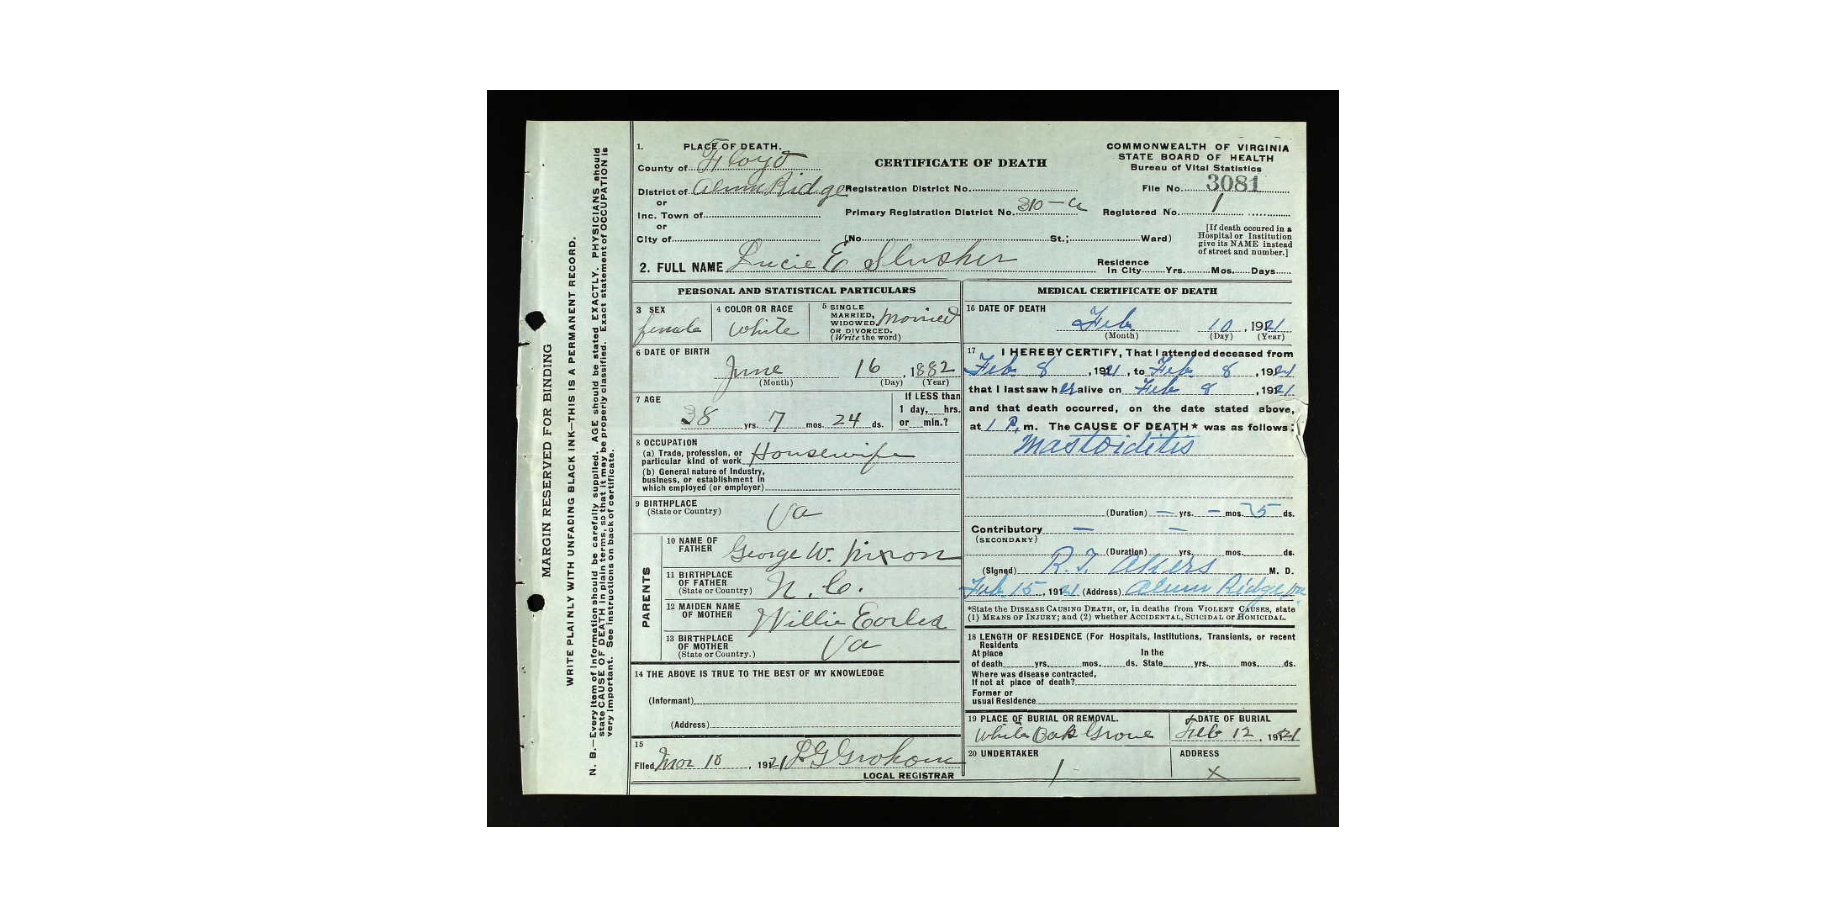 MARGIN RESERVED FOR BINDING
WRITE PLAINLY WITH UNFADING BLACK INK—THIS IS A PERMANENT RECORD.
N. B.—Every item of information should be carefully supplied. AGE should be stated EXACTLY. PHYSICIANS should
state CAUSE OF DEATH in plain terms, so that it may be properly classified. Exact statement of OCCUPATION is
very important. See instructions on back of certificate.
1. PLACE OF DEATH.
County of Floyd
District of Alum Ridge
or
Inc. Town of
or
City of
CERTIFICATE OF DEATH
Registration District No.
Primary Registration District No.
(No St.; Ward)
COMMONWEALTH OF VIRGINIA
STATE BOARD OF HEALTH
Bureau of Vital Statistics
File No. 3081
Registered No. 1
[If death occured in a
Hospital or Institution
give its NAME instead
of street and number.]
2. FULL NAME Lucie E Slusher
Residence
In City Yrs. Mos. Days
PERSONAL AND STATISTICAL PARTICULARS
3 SEX
female
4 COLOR OR RACE
White
5 SINGLE
MARRIED,
WIDOWED,
OR DIVORCED.
(Write the word)
Married
6 DATE OF BIRTH
June 16, 1882
(Month) (Day) (Year)
7 AGE
38 yrs. 7 mos. 24 ds.
If LESS than
1 day, hrs.
or min.?
8 OCCUPATION
(a) Trade, profession, or
particular kind of work Housewife
(b) General nature of Industry,
business, or establishment in
which employed (or employer)
9 BIRTHPLACE
(State or Country) Va
PARENTS
10 NAME OF
FATHER George W.
11 BIRTHPLACE
OF FATHER
(State or Country) N. C.
12 MAIDEN NAME
OF MOTHER Willie
13 BIRTHPLACE
OF MOTHER
(State or Country.) Va
14 THE ABOVE IS TRUE TO THE BEST OF MY KNOWLEDGE
(Informant)
(Address)
15
Filed Mar 10, 1921
LOCAL REGISTRAR
MEDICAL CERTIFICATE OF DEATH
16 DATE OF DEATH
Feb 10, 1921
(Month) (Day) (Year)
17 I HEREBY CERTIFY, That I attended deceased from
Feb 8, 1921, to Feb 8, 1921
that I last saw her alive on Feb 8, 1921
and that death occurred, on the date stated above,
at 1 P. m. The CAUSE OF DEATH* was as follows:
Mastoiditis
(Duration) — yrs. — mos. 5 ds.
Contributory — —
(SECONDARY)
(Duration) yrs. mos. ds.
(Signed) R. T. Akers M. D.
Feb 15, 1921 (Address) Alum Ridge Va
*State the DISEASE CAUSING DEATH, or, in deaths from VIOLENT CAUSES, state
(1) MEANS OF INJURY; and (2) whether ACCIDENTAL, SUICIDAL or HOMICIDAL.
18 LENGTH OF RESIDENCE (For Hospitals, Institutions, Transients, or recent
Residents
At place In the
of death yrs. mos. ds. State yrs. mos. ds.
Where was disease contracted,
If not at place of death?
Former or
usual Residence
19 PLACE OF BURIAL OR REMOVAL.
White Oak Grove
DATE OF BURIAL
Feb 12, 1921
20 UNDERTAKER
ADDRESS
X